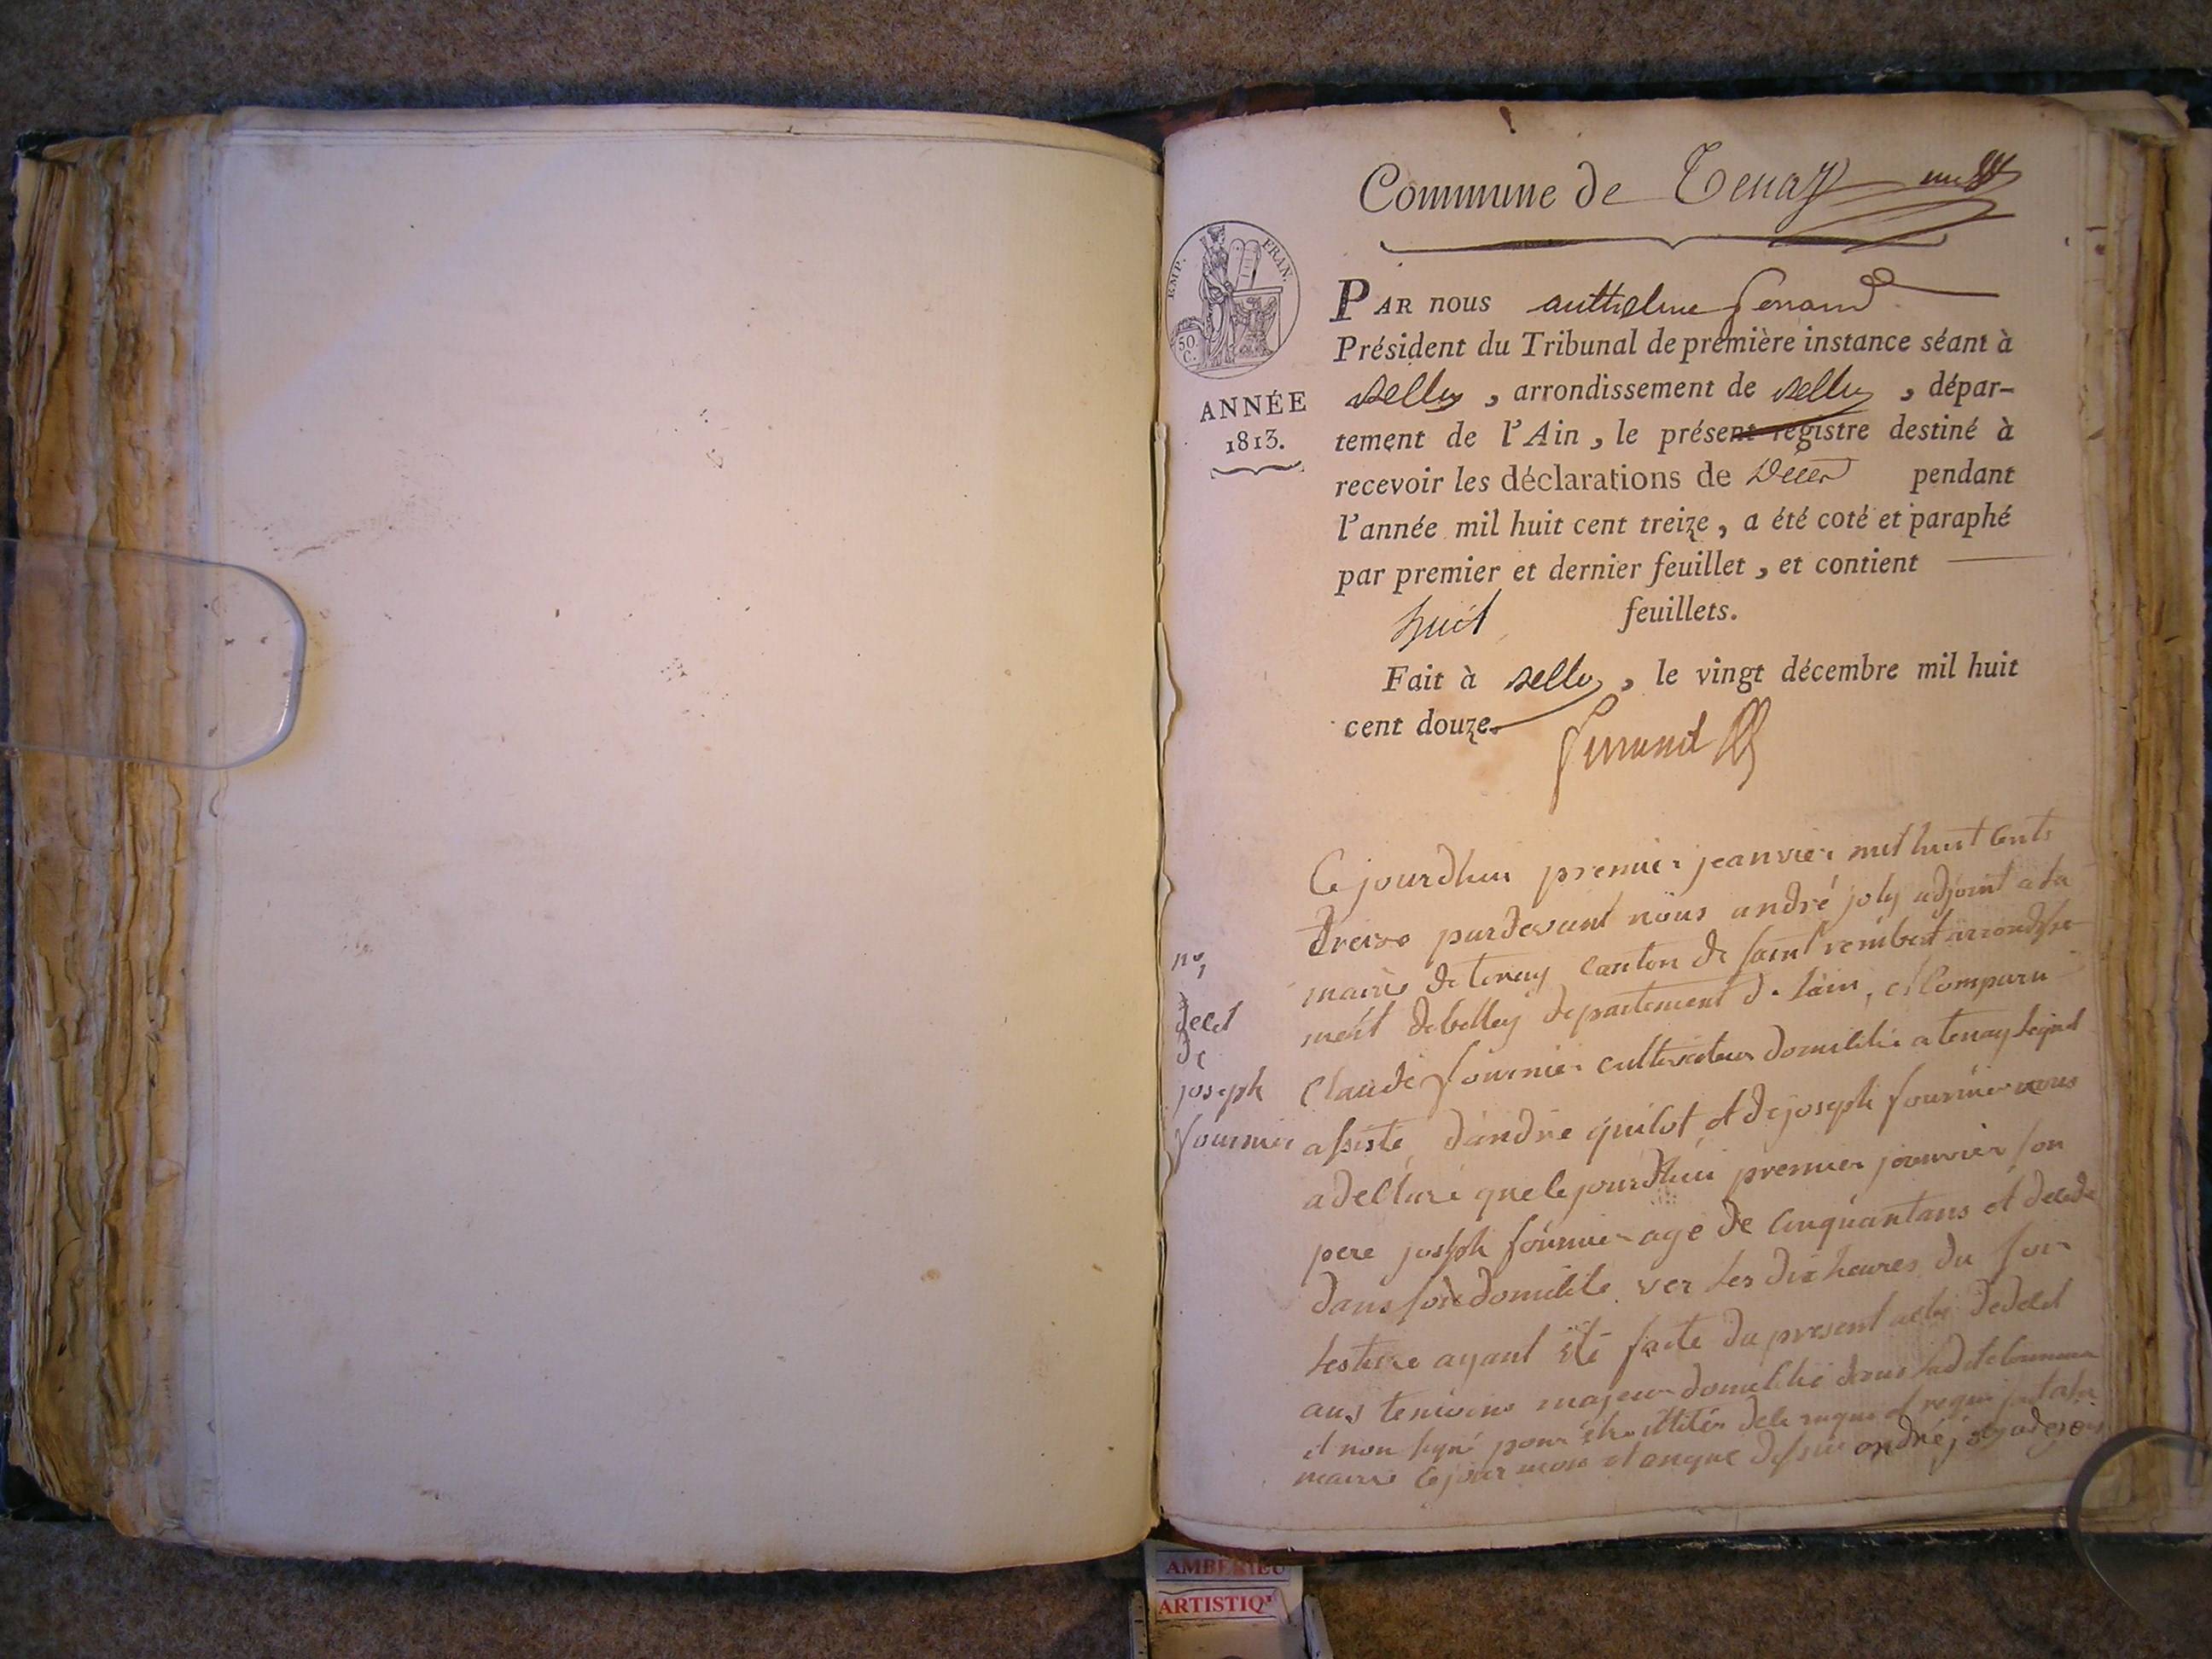 Commune de Tenay
EMP. FRAN.
50
C.
ANNÉE
1813.
PAR nous anthelme ferrand
Président du Tribunal de première instance séant à
Belley, arrondissement de Belley, dépar-
tement de l'Ain, le présent registre destiné à
recevoir les déclarations de Décès pendant
l'année mil huit cent treize, a été coté et paraphé
par premier et dernier feuillet, et contient
huit feuillets.
Fait à Belley, le vingt décembre mil huit
cent douze.
ferrand
n° 1
decet
de
joseph
fournier
Ce jourdhui premier jeanvier mil huit cents
treize pardevant nous andré joly adjoint a la
mairie de tenay canton de saint rembert arrondisse
ment de belley departement de lain, est comparu
Claude fournier cultivateur domicilié a tenay lequel
assisté dandré quilot et de joseph fournier nous
a declaré que le jourdhui premier janvier son
pere joseph fournier agé de cinquantans et decede
dans son domicile ver les dix heures du soir
lecture ayant été faite du present acte de decet
aus temoins majeur domicilié dans ladite commune
et non signé pour être de ce requis et requi fait a la
mairie le jour mois et an que dessus andré joly adjoin
AMBERIEU
ARTISTIQ